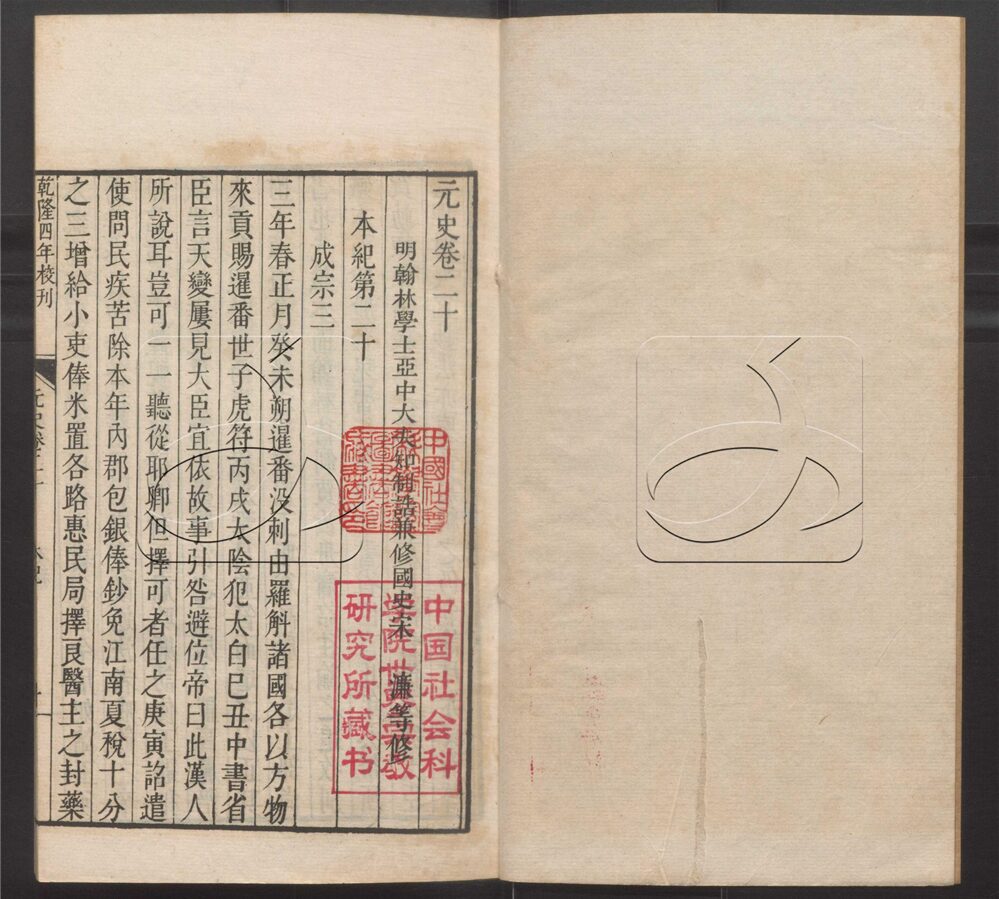 元史卷二十
明翰林學士亞中大夫知制誥兼修國史宋 濂等修
本紀第二十
成宗三
三年春正月癸未朔暹番没剌由羅斛諸國各以方物
來貢賜暹番世子虎符丙戌太陰犯太白己丑中書省
臣言天變屢見大臣宜依故事引咎避位帝曰此漢人
所說耳豈可一一聽從耶卿但擇可者任之庚寅詔遣
使問民疾苦除本年內郡包銀俸鈔免江南夏稅十分
之三增給小吏俸米置各路惠民局擇良醫主之封藥
乾隆四年校刊
中国社会科
学院世界宗教
研究所藏书